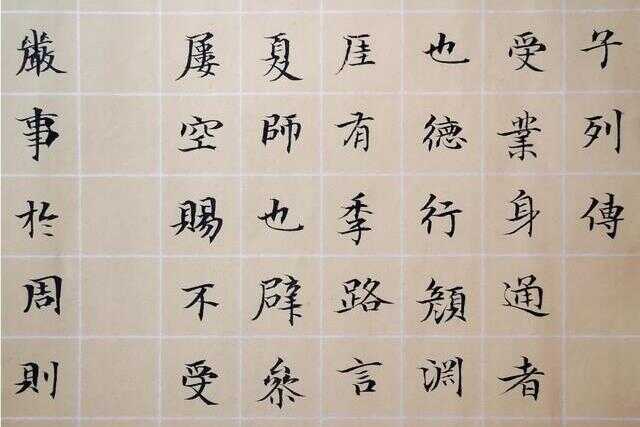 子列傳
受業身通者
也德行顏淵
厓有季路言
夏師也辟參
屢空賜不受
嚴事於周則